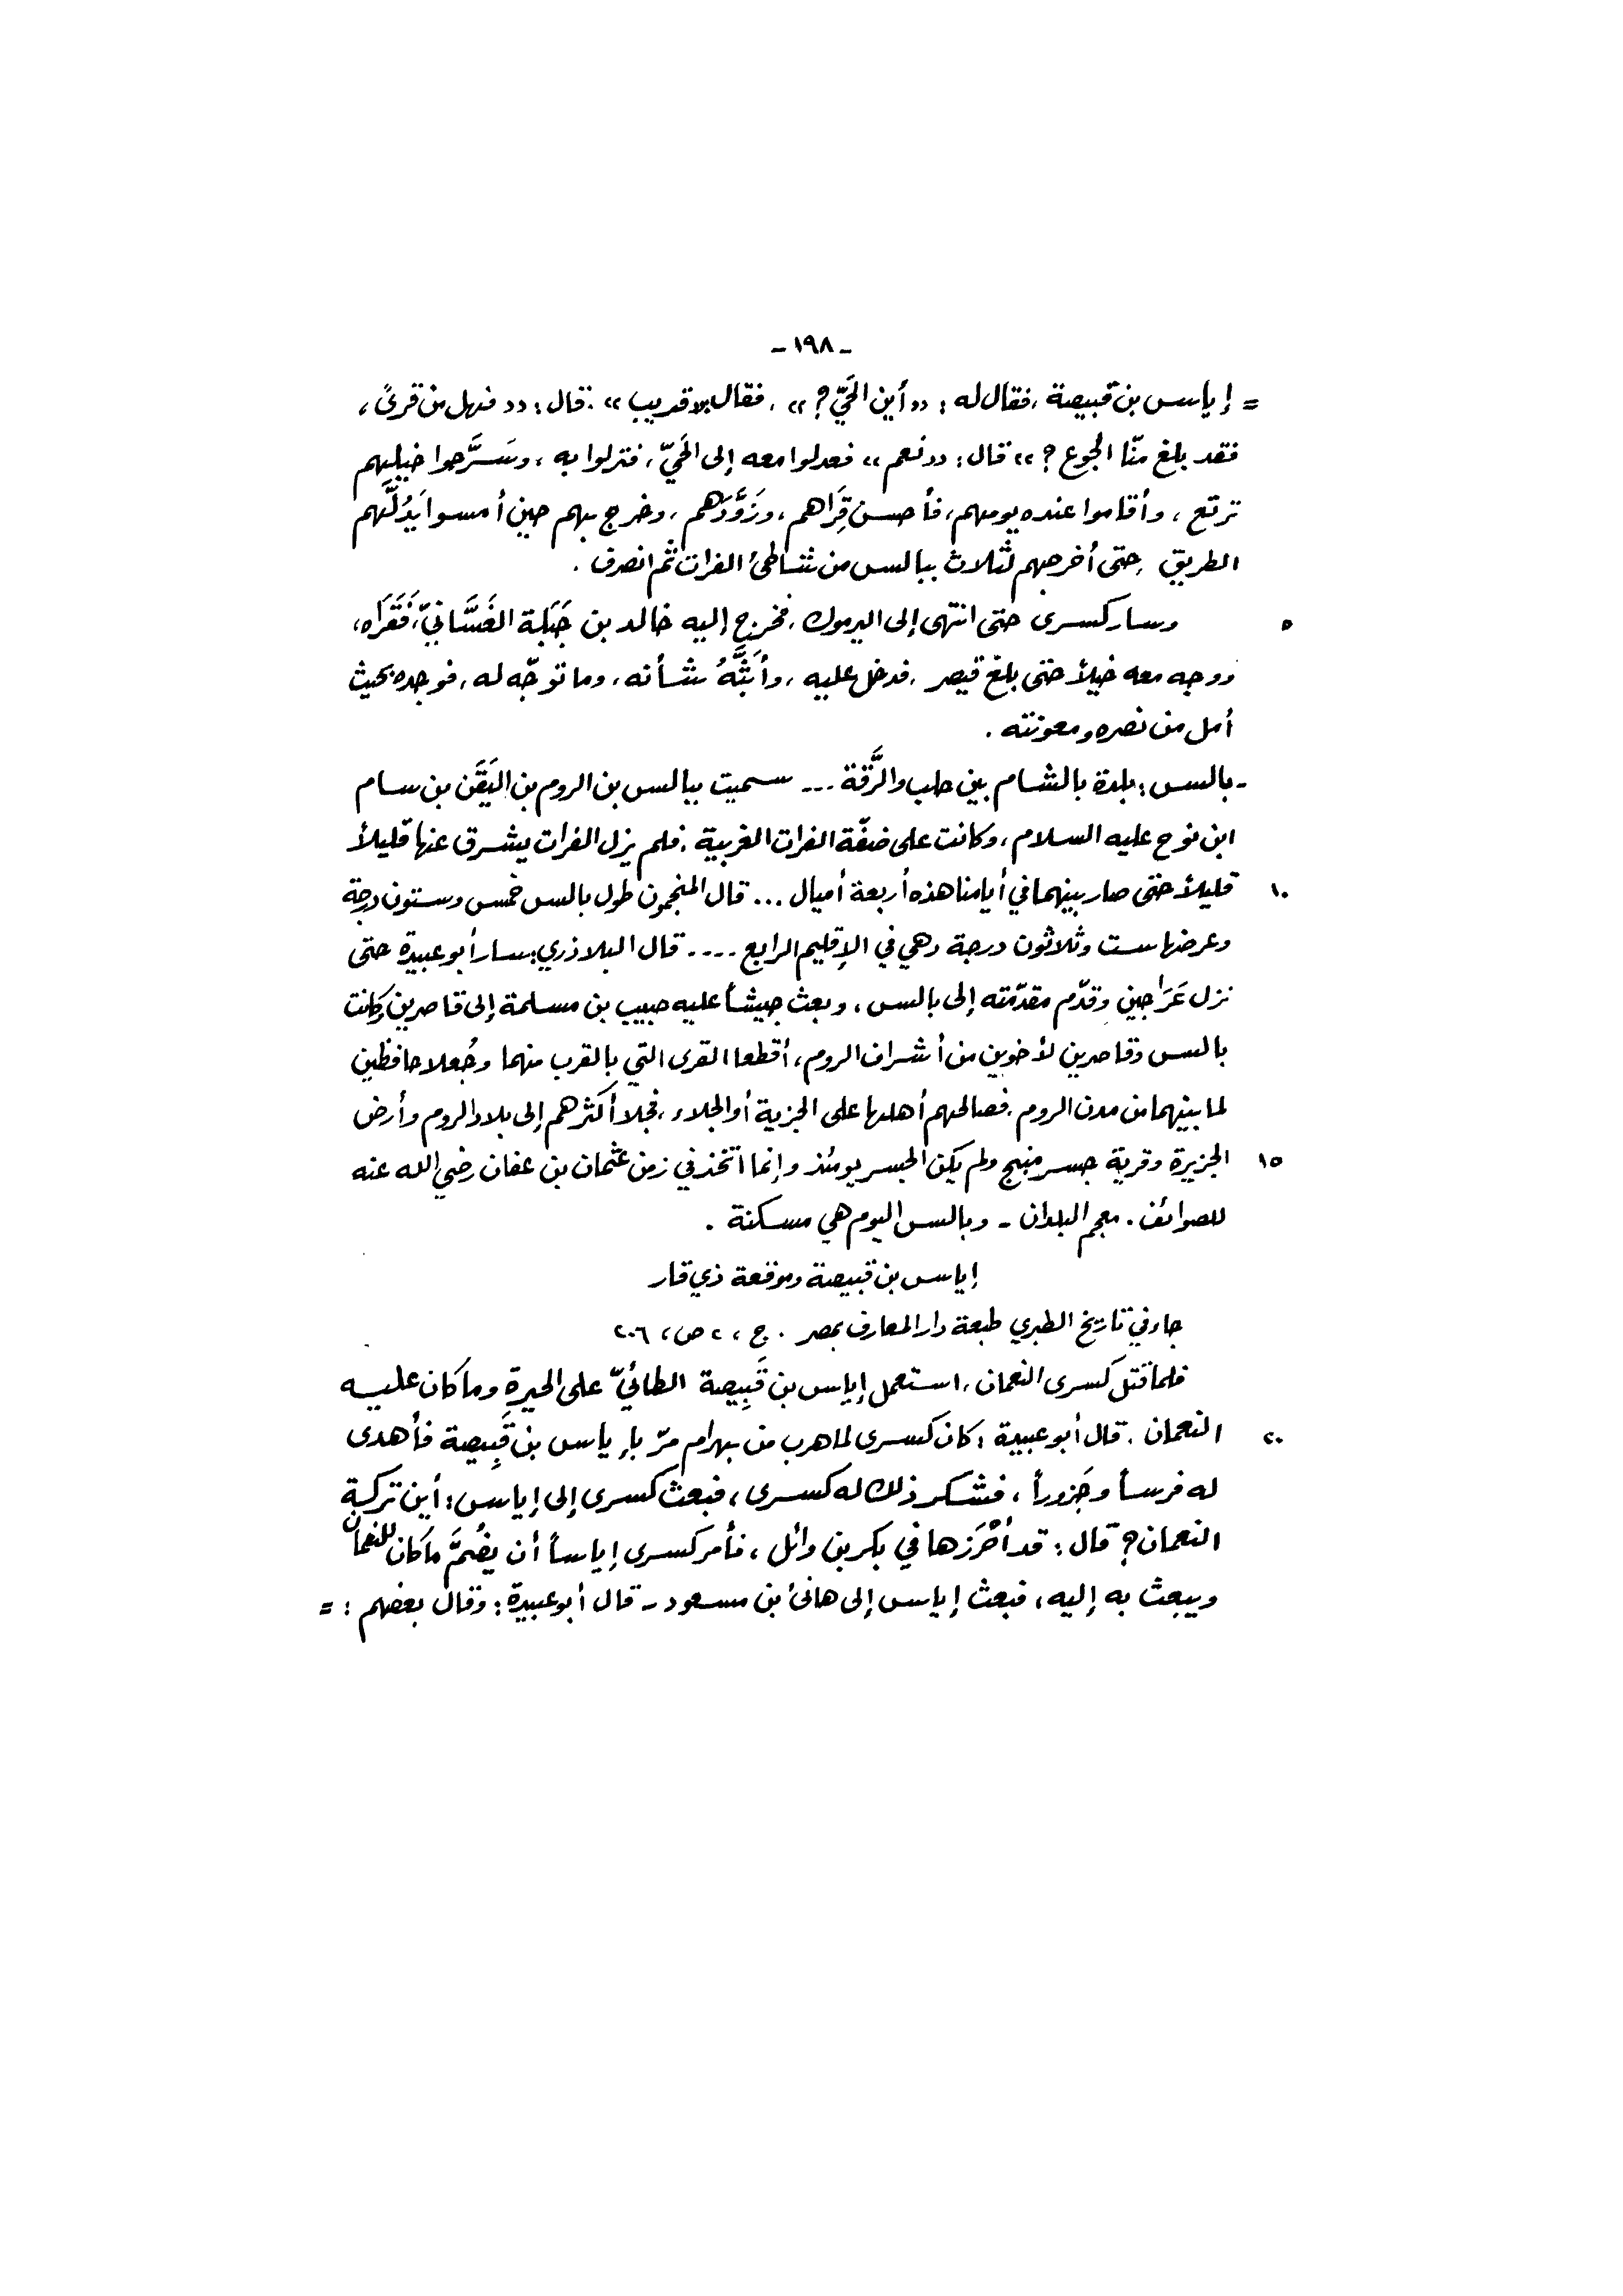 - ١٩٨ -
= إياس بن قبيصة، فقال له: «أين الحَيّ؟»، فقال: «قريب». قال: «فهل من قرىً،
فقد بلغ منّا الجوع؟» قال: «نعم» فعدلوا معه إلى الحَيّ، فنزلوا به، وسَرَّحوا خيلهم
ترتع، وأقاموا عنده يومهم، فأحسن قِرَاهم، وزَوَّدَهم، وخرج بهم حين أمسوا يَدُلُّهم
الطريق، حتى أخرجهم لثلاث ببالس من شاطئ الفرات ثم انصرف.
٥ وسار كسرى حتى انتهى إلى اليرموك، فخرج إليه خالد بن جَبَلة الغَسَّانيّ، فَقَرَاه،
ووجه معه خيلاً حتى بلغ قيصر، فدخل عليه، وأَبَثَّهُ شأنه، وما توجّه له، فوجده بحيث
أمل من نصره ومعونته.
- بالس: بلدة بالشام بين حلب والرَّقة ... سميت ببالس بن الروم بن اليَقَن بن سام
ابن نوح عليه السلام، وكانت على ضفّة الفرات الغربية، فلم يزل الفرات يشرق عنها قليلاً
١٠ قليلاً حتى صار بينهما في أيامنا هذه أربعة أميال ... قال المنجمون طول بالس خمس وستون درجة
وعرضها ست وثلاثون درجة وهي في الإقليم الرابع .... قال البلاذري: سار أبو عبيدة حتى
نزل عَرَاجين وقدّم مقدّمته إلى بالس، وبعث جيشاً عليه حبيب بن مسلمة إلى قاصرين وكانت
بالس وقاصرين لأخوين من أشراف الروم، أقطعا القرى التي بالقرب منهما وجُعلا حافظين
لما بينهما من مدن الروم، فصالحهم أهلها على الجزية أو الجلاء، فجلا أكثرهم إلى بلاد الروم وأرض
١٥ الجزيرة وقرية جسر منبج ولم يكن الجسر يومئذ وإنما اتخذ في زمن عثمان بن عفان رضي الله عنه
للصوائف. معجم البلدان - وبالس اليوم هي مسكنة.
إياس بن قبيصة وموقعة ذي قار
جاء في تاريخ الطبري طبعة دار المعارف بمصر. ج، ٢ ص، ٢٠٦
فلما قتل كسرى النعمان، استعمل إياس بن قَبِيصة الطائيّ على الحيرة وما كان عليه
٢٠ النعمان. قال أبو عبيدة: كان كسرى لما هرب من بهرام مرّ بإياس بن قَبِيصة فأهدى
له فرساً وجَزوراً، فشكر ذلك له كسرى، فبعث كسرى إلى إياس: أين تركة
النعمان؟ قال: قد أحْرَزها في بكر بن وائل، فأمر كسرى إياساً أن يضُمَّ ما كان للنعمان
ويبعث به إليه، فبعث إياس إلى هانئ بن مسعود - قال أبو عبيدة: وقال بعضهم: =